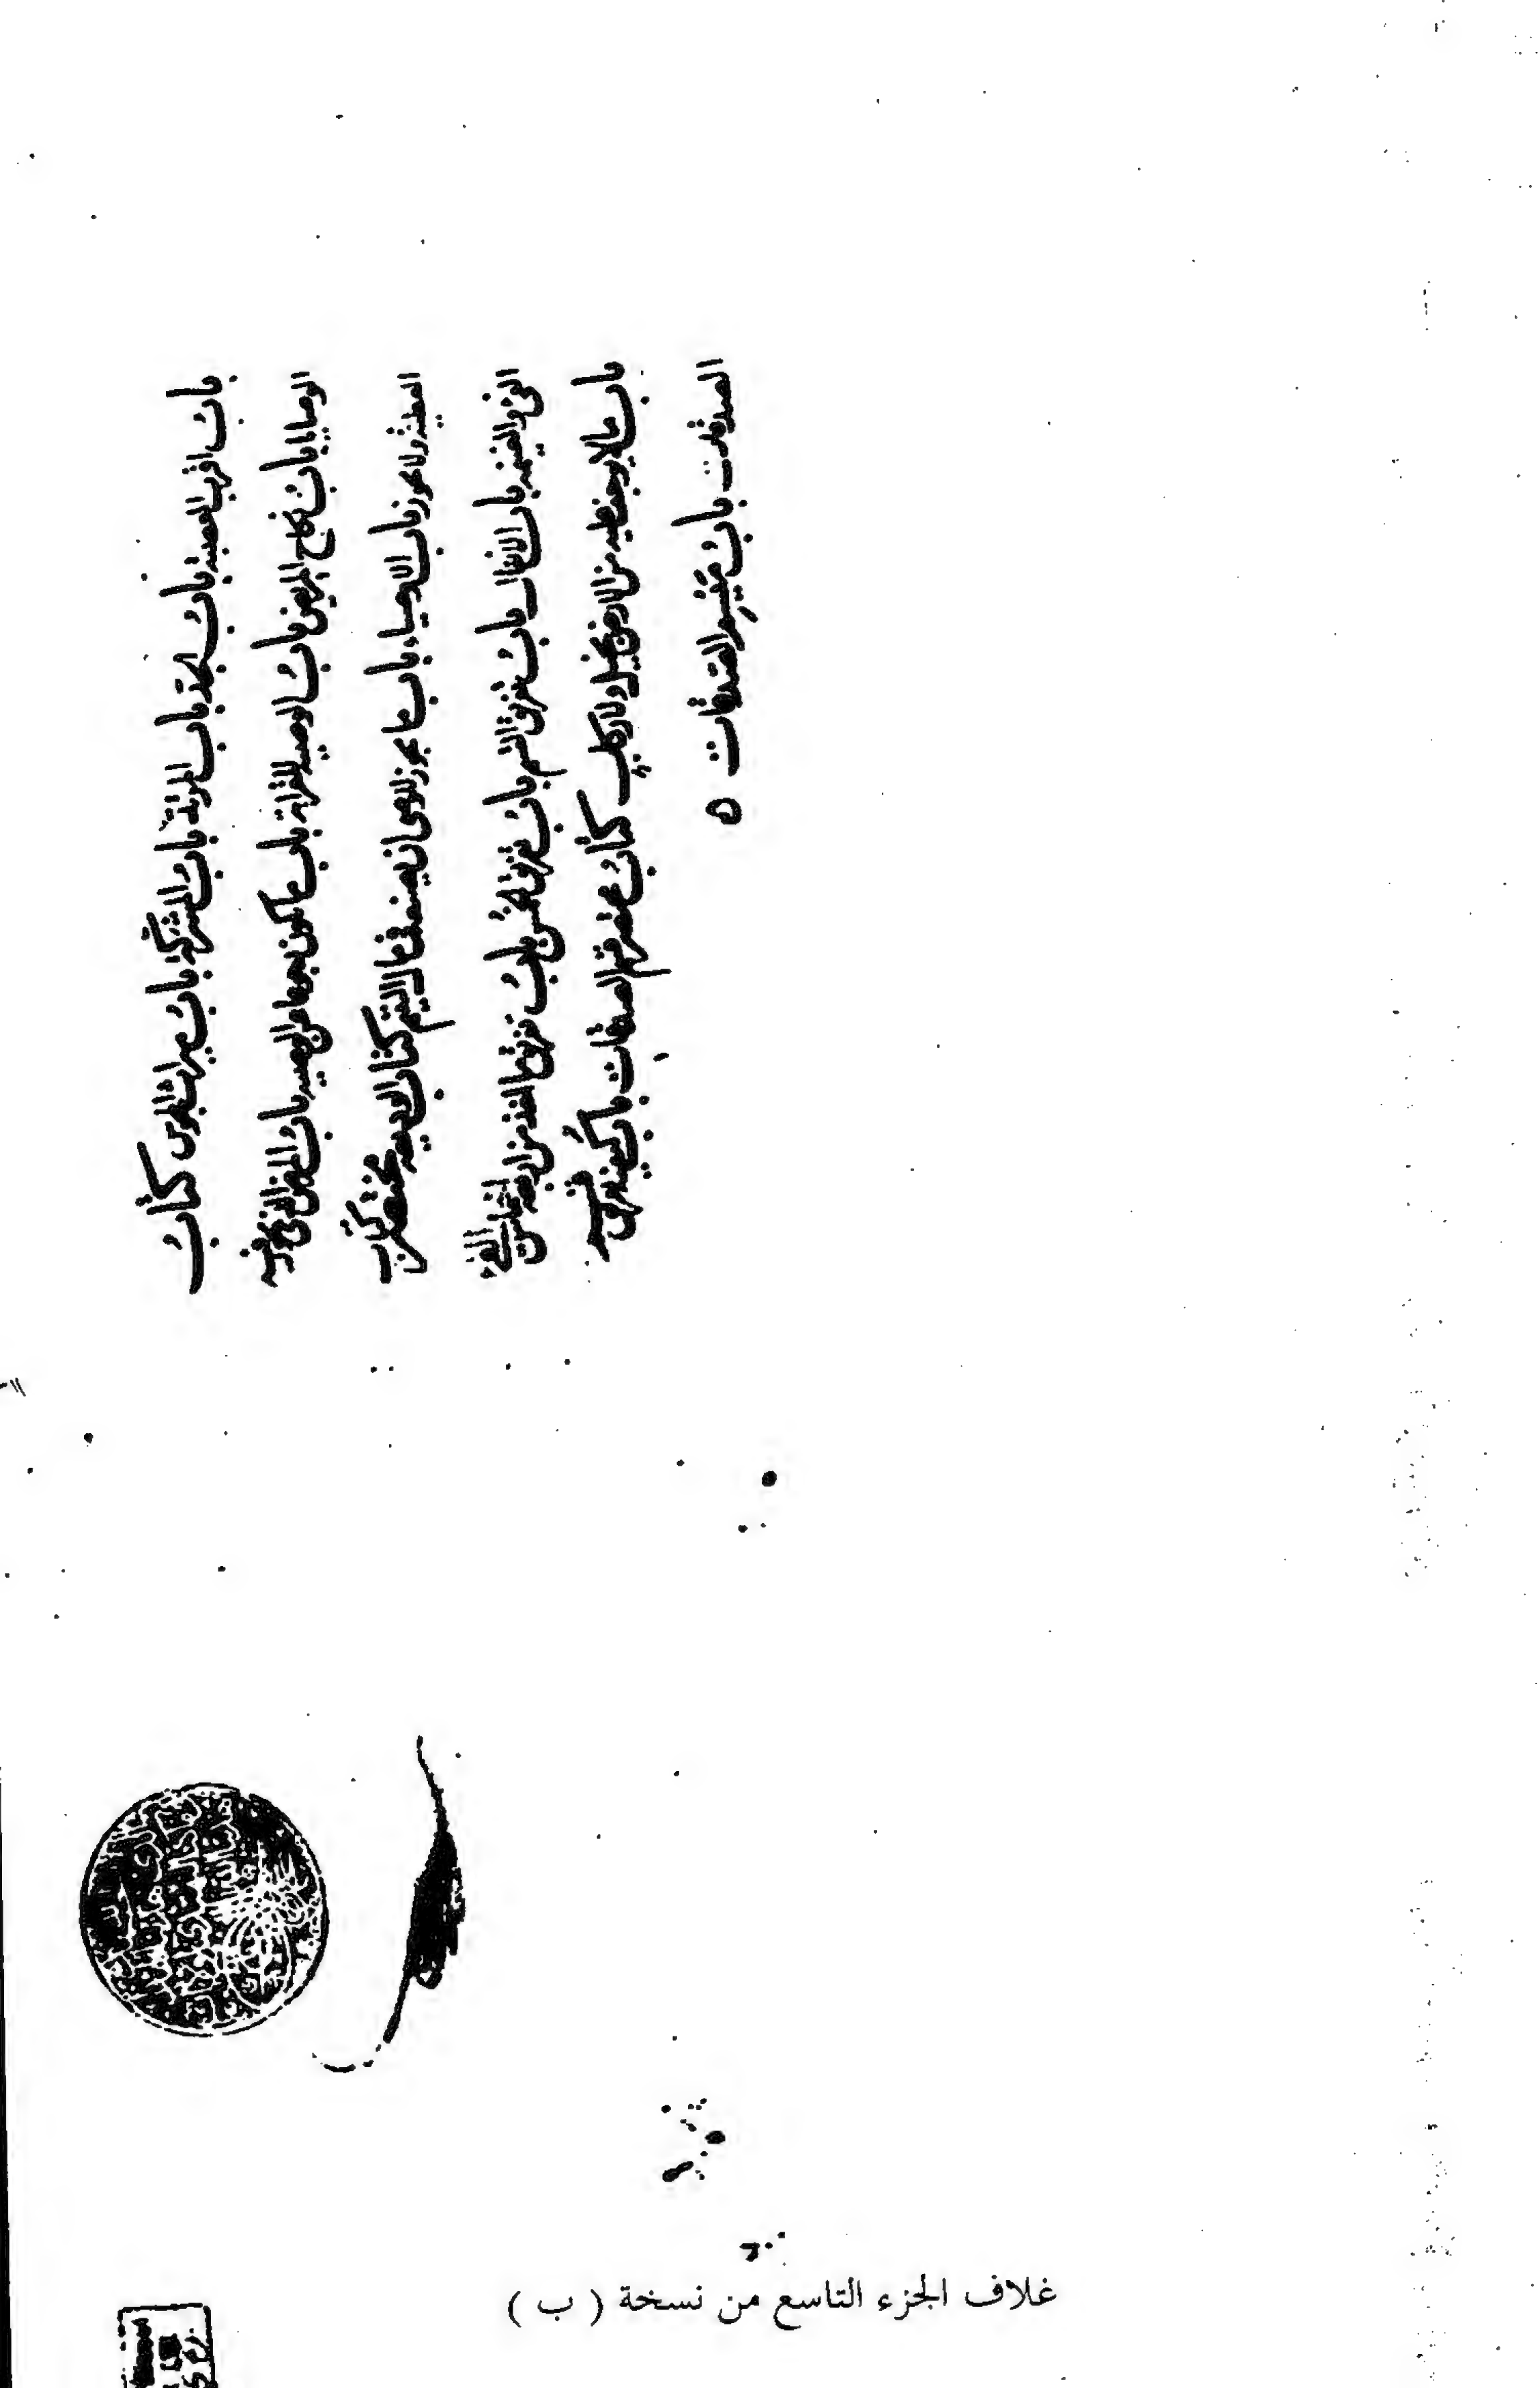 باب اقرب العصبة باب الجد باب المرتد باب المشركة باب ميراث المجوس كتاب
الوصايا باب نكاح المريض باب الوصية للقرابة باب ما يكون رجوعا في الوصية باب المرض الذي تجوز فيه
العطية ولا تجوز باب الاوصياء باب ما يجوز للوصي ان يصنعه في مال اليتيم كتاب الوديعة مختصر من كتاب
الفيء والغنيمة باب الانفال باب تفريق القسم باب تفريق الخمس باب تفريق ما اخذ من اربعة اخماس الفيء
باب ما لا يوجف عليه من الارضين بخيل ولا ركاب كتاب مختصر قسم الصدقات باب كيف تفريق قسم
الصدقات باب ميسم الصدقات ه
غلاف الجزء التاسع من نسخة ( ب )